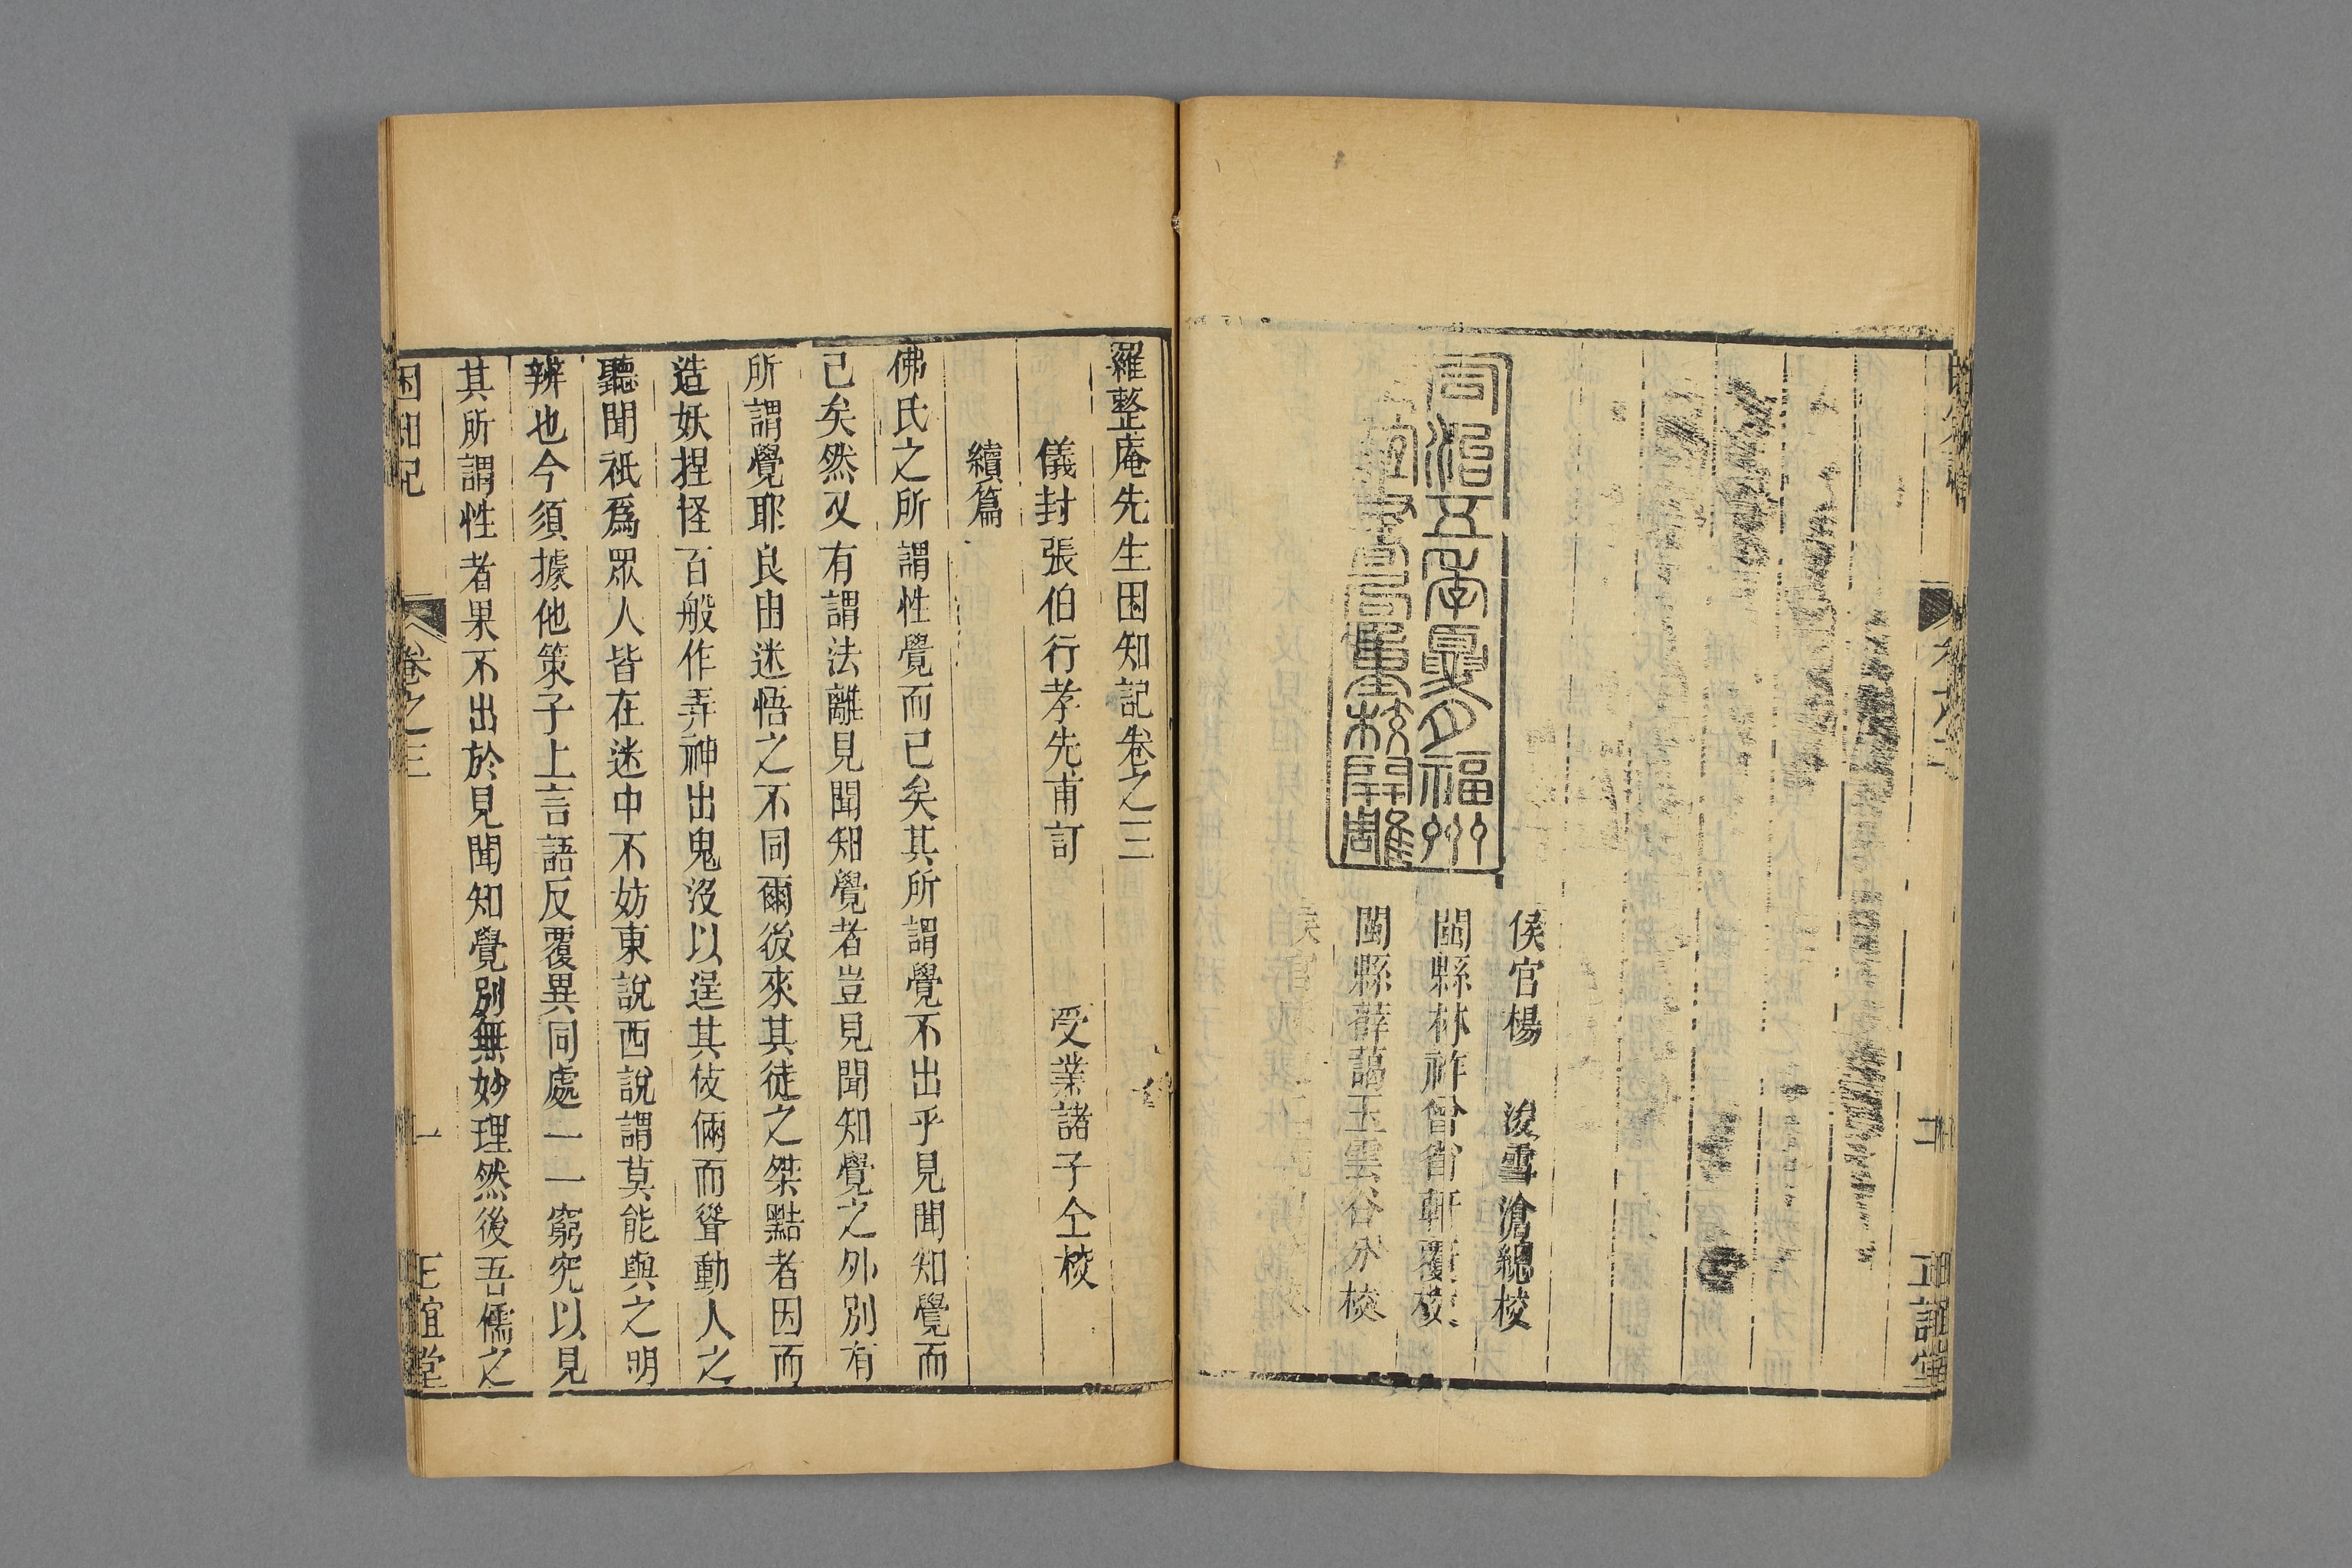 同治五年夏月福州
正誼書局重校開雕
侯官楊　浚雪滄總校
閩縣林祚曾省軒覆校
閩縣薛藹玉雲谷分校
正誼堂
羅整庵先生困知記卷之三
儀封張伯行孝先甫訂　受業諸子仝校
續篇
佛氏之所謂性覺而已矣其所謂覺不出乎見聞知覺而
已矣然又有謂法離見聞知覺者豈見聞知覺之外別有
所謂覺耶良由迷悟之不同爾後來其徒之桀黠者因而
造妖捏怪百般作弄神出鬼沒以逞其伎倆而聳動人之
聽聞衹爲眾人皆在迷中不妨東說西說謂莫能與之明
辨也今須據他策子上言語反覆異同處一一窮究以見
其所謂性者果不出於見聞知覺別無妙理然後吾儒之
困知記　卷之三　一　正誼堂